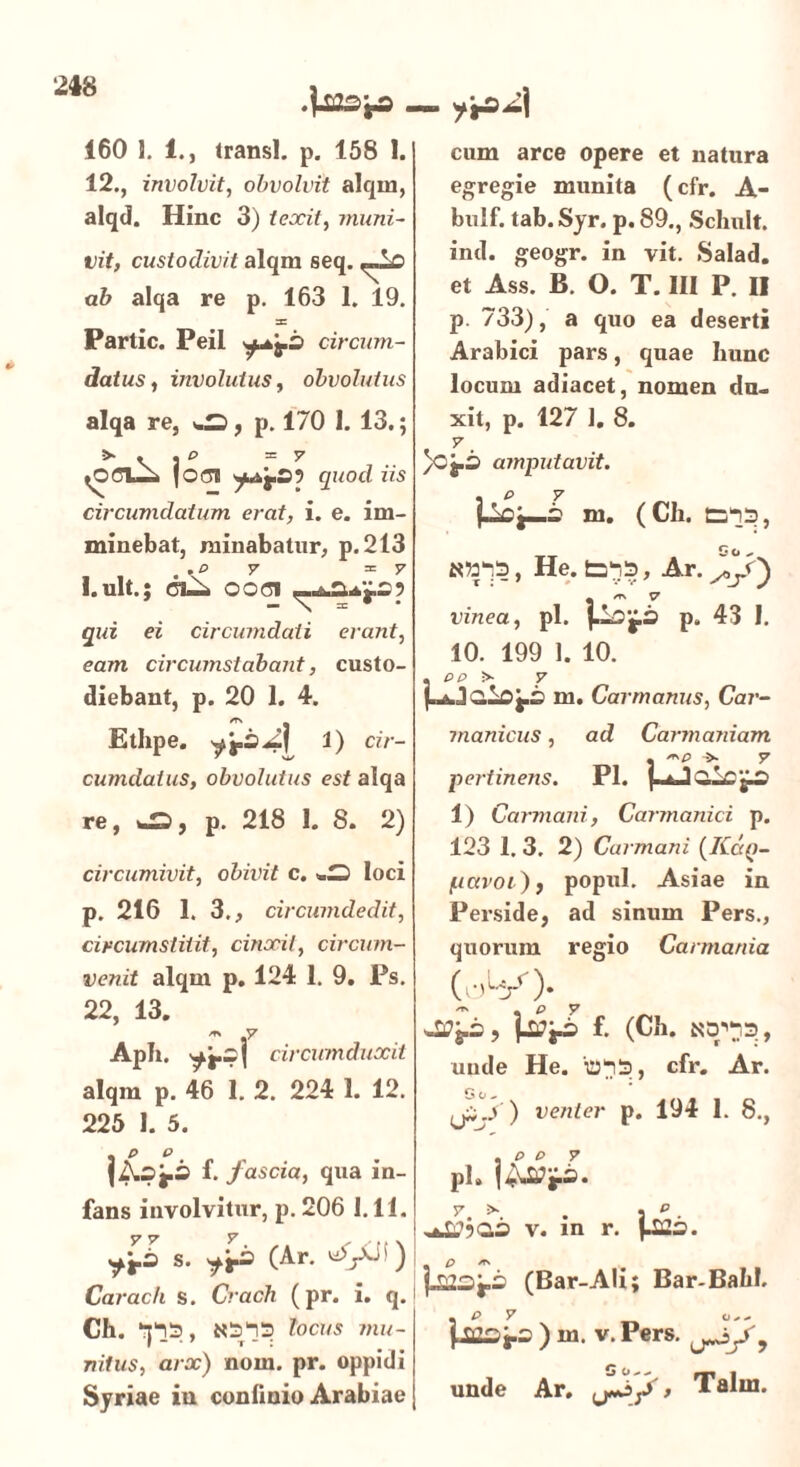 248
ܐܬܟܪܟ — ܟܪܦܣܐ.
160 l. 1., transl. p. 158 l.
12., involvit, obvolvit alqm,
alqd. Hinc 3) texit, muni-
vit, custodivit alqm seq. ܡܢ
ab alqa re p. 163 l. 19.
Partic. Peil ܟܪܝܟ circum-
datus, involutus, obvolutus
alqa re, ܒ, p. 170 l. 13.;
ܕܟܪܝܟ ܗܘܐ ܠܗܘܢ quod iis
circumdatum erat, i. e. im-
minebat, minabatur, p. 213
l. ult.; ܕܟܪܝܟܝܢ ܗܘܘ ܠܗ
qui ei circumdati erant,
eam circumstabant, custo-
diebant, p. 20 l. 4.
Ethpe. ܐܬܟܪܟ 1) cir-
cumdatus, obvolutus est alqa
re, ܒ, p. 218 l. 8. 2)
circumivit, obivit c. ܒ loci
p. 216 l. 3., circumdedit,
circumstitit, cinxit, circum-
venit alqm p. 124 l. 9. Ps.
22, 13.
Aph. ܐܟܪܟ circumduxit
alqm p. 46 l. 2. 224 l. 12.
225 l. 5.
ܟܪܟܬܐ f. fascia, qua in-
fans involvitur, p. 206 l. 11.
ܟܪܟ s. ܟܪܟ (Ar. الكرك)
Carach s. Crach (pr. i. q.
Ch. כְּרַךְ, כַּרְכָּא locus mu-
nitus, arx) nom. pr. oppidi
Syriae in confinio Arabiae
cum arce opere et natura
egregie munita (cfr. A-
bulf. tab. Syr. p. 89., Schult.
ind. geogr. in vit. Salad.
et Ass. B. O. T. III P. II
p. 733), a quo ea deserti
Arabici pars, quae hunc
locum adiacet, nomen du-
xit, p. 127 l. 8.
ܟܪܡ amputavit.
ܟܪܡܐ m. (Ch. כְּרַם,
כַּרְמָא, He. כֶּרֶם, Ar. كَرْمٌ)
vinea, pl. ܟܪܡܐ p. 43 l.
10. 199 l. 10.
ܟܪܡܘܢܝܐ m. Carmanus, Car-
manicus, ad Carmaniam
pertinens. Pl. ܟܪܡܘܢܝܐ
1) Carmani, Carmanici p.
123 l. 3. 2) Carmani (Κάρ-
μανοι), popul. Asiae in
Perside, ad sinum Pers.,
quorum regio Carmania
(كرمان).
ܟܪܣ, ܟܪܣܐ f. (Ch. כְּרֵיסָא,
unde He. כרש, cfr. Ar.
كَرْشٌ) venter p. 194 l. 8.,
pl. ܟܪܣܬܐ.
ܟܘܪܣܝ v. in r. ܟܣܐ.
ܟܪܦܣܐ (Bar-Ali; Bar-Bahl.
ܟܪܦܣܐ) m. v. Pers. كَرَفْس,
unde Ar. كَرَفْسٌ, Talm.